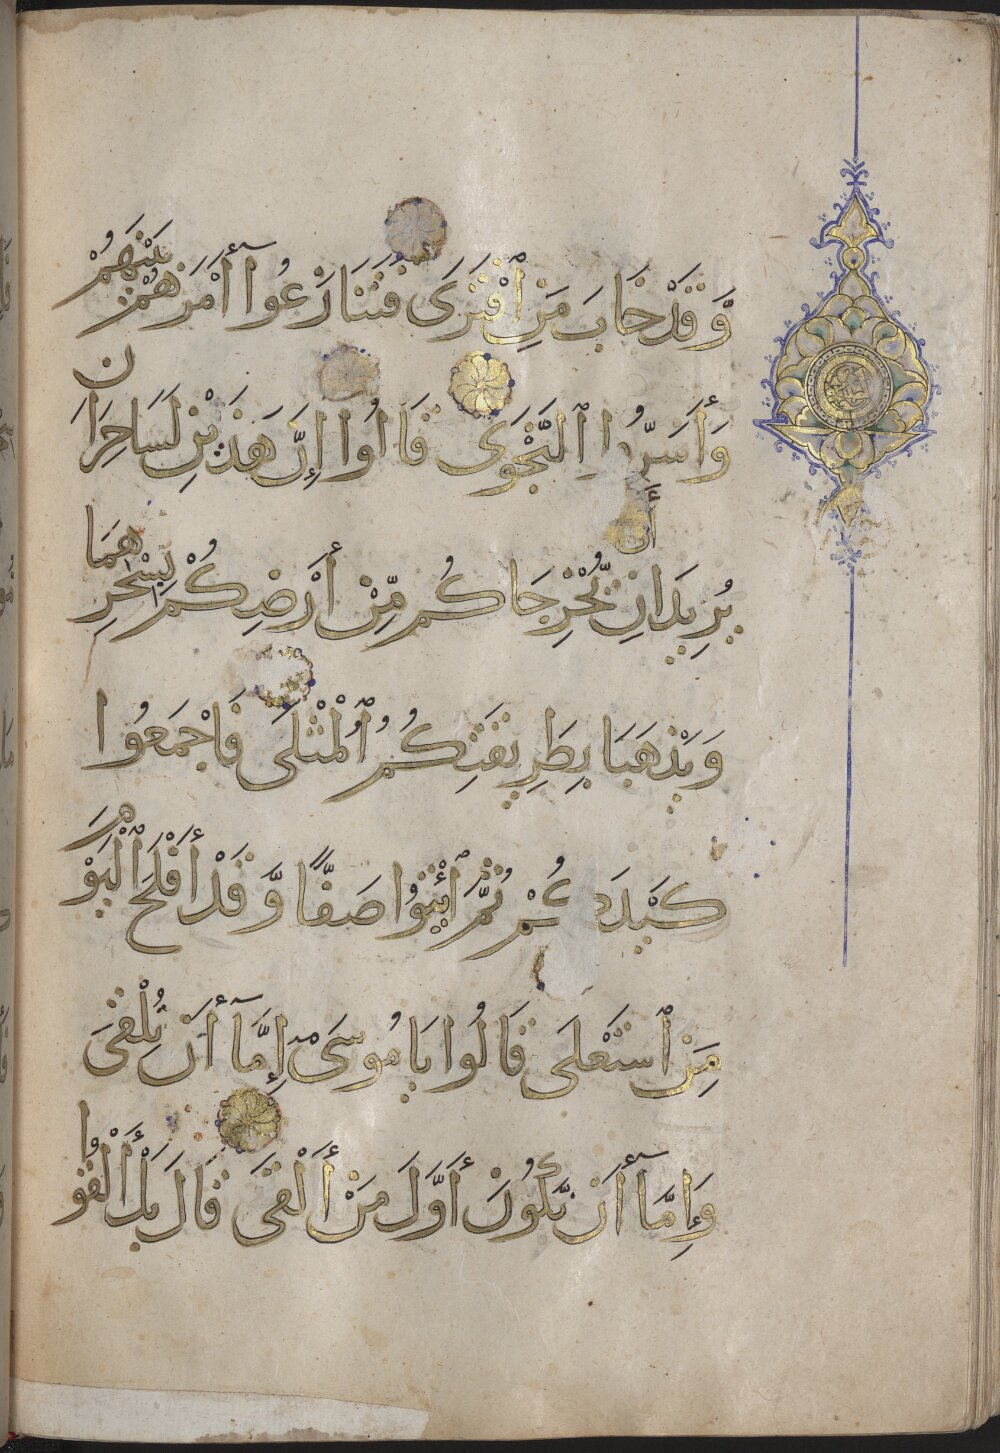 وَّقَدْ خَابَ مَنِ ٱفْتَرَى فَتَنَازَعُوٓا أَمْرَهُمْ بَيْنَهُمْ
وَأَسَرُّوا ٱلنَّجْوَى قَالُوا إِنَّ هَذَيْنِ لَسَاحِرَانِ
يُرِيدَانِ أَنْ يُّخْرِجَاكُم مِّنْ أَرْضِكُمْ بِسِحْرِهِمَا
وَيَذْهَبَا بِطَرِيقَتِكُمُ ٱلْمُثْلَى فَاجْمَعُوا
كَيْدَكُمْ ثُمَّ ٱئْتُوا صَفًّا وَّقَدْ أَفْلَحَ ٱلْيَوْمَ
مَنِ ٱسْتَعْلَى قَالُوا يَامُوسَىٓ إِمَّآ أَن تُلْقِىَ
وَإِمَّآ أَن نَّكُونَ أَوَّلَ مَنْ أَلْقَى قَالَ بَلْ أَلْقُوا